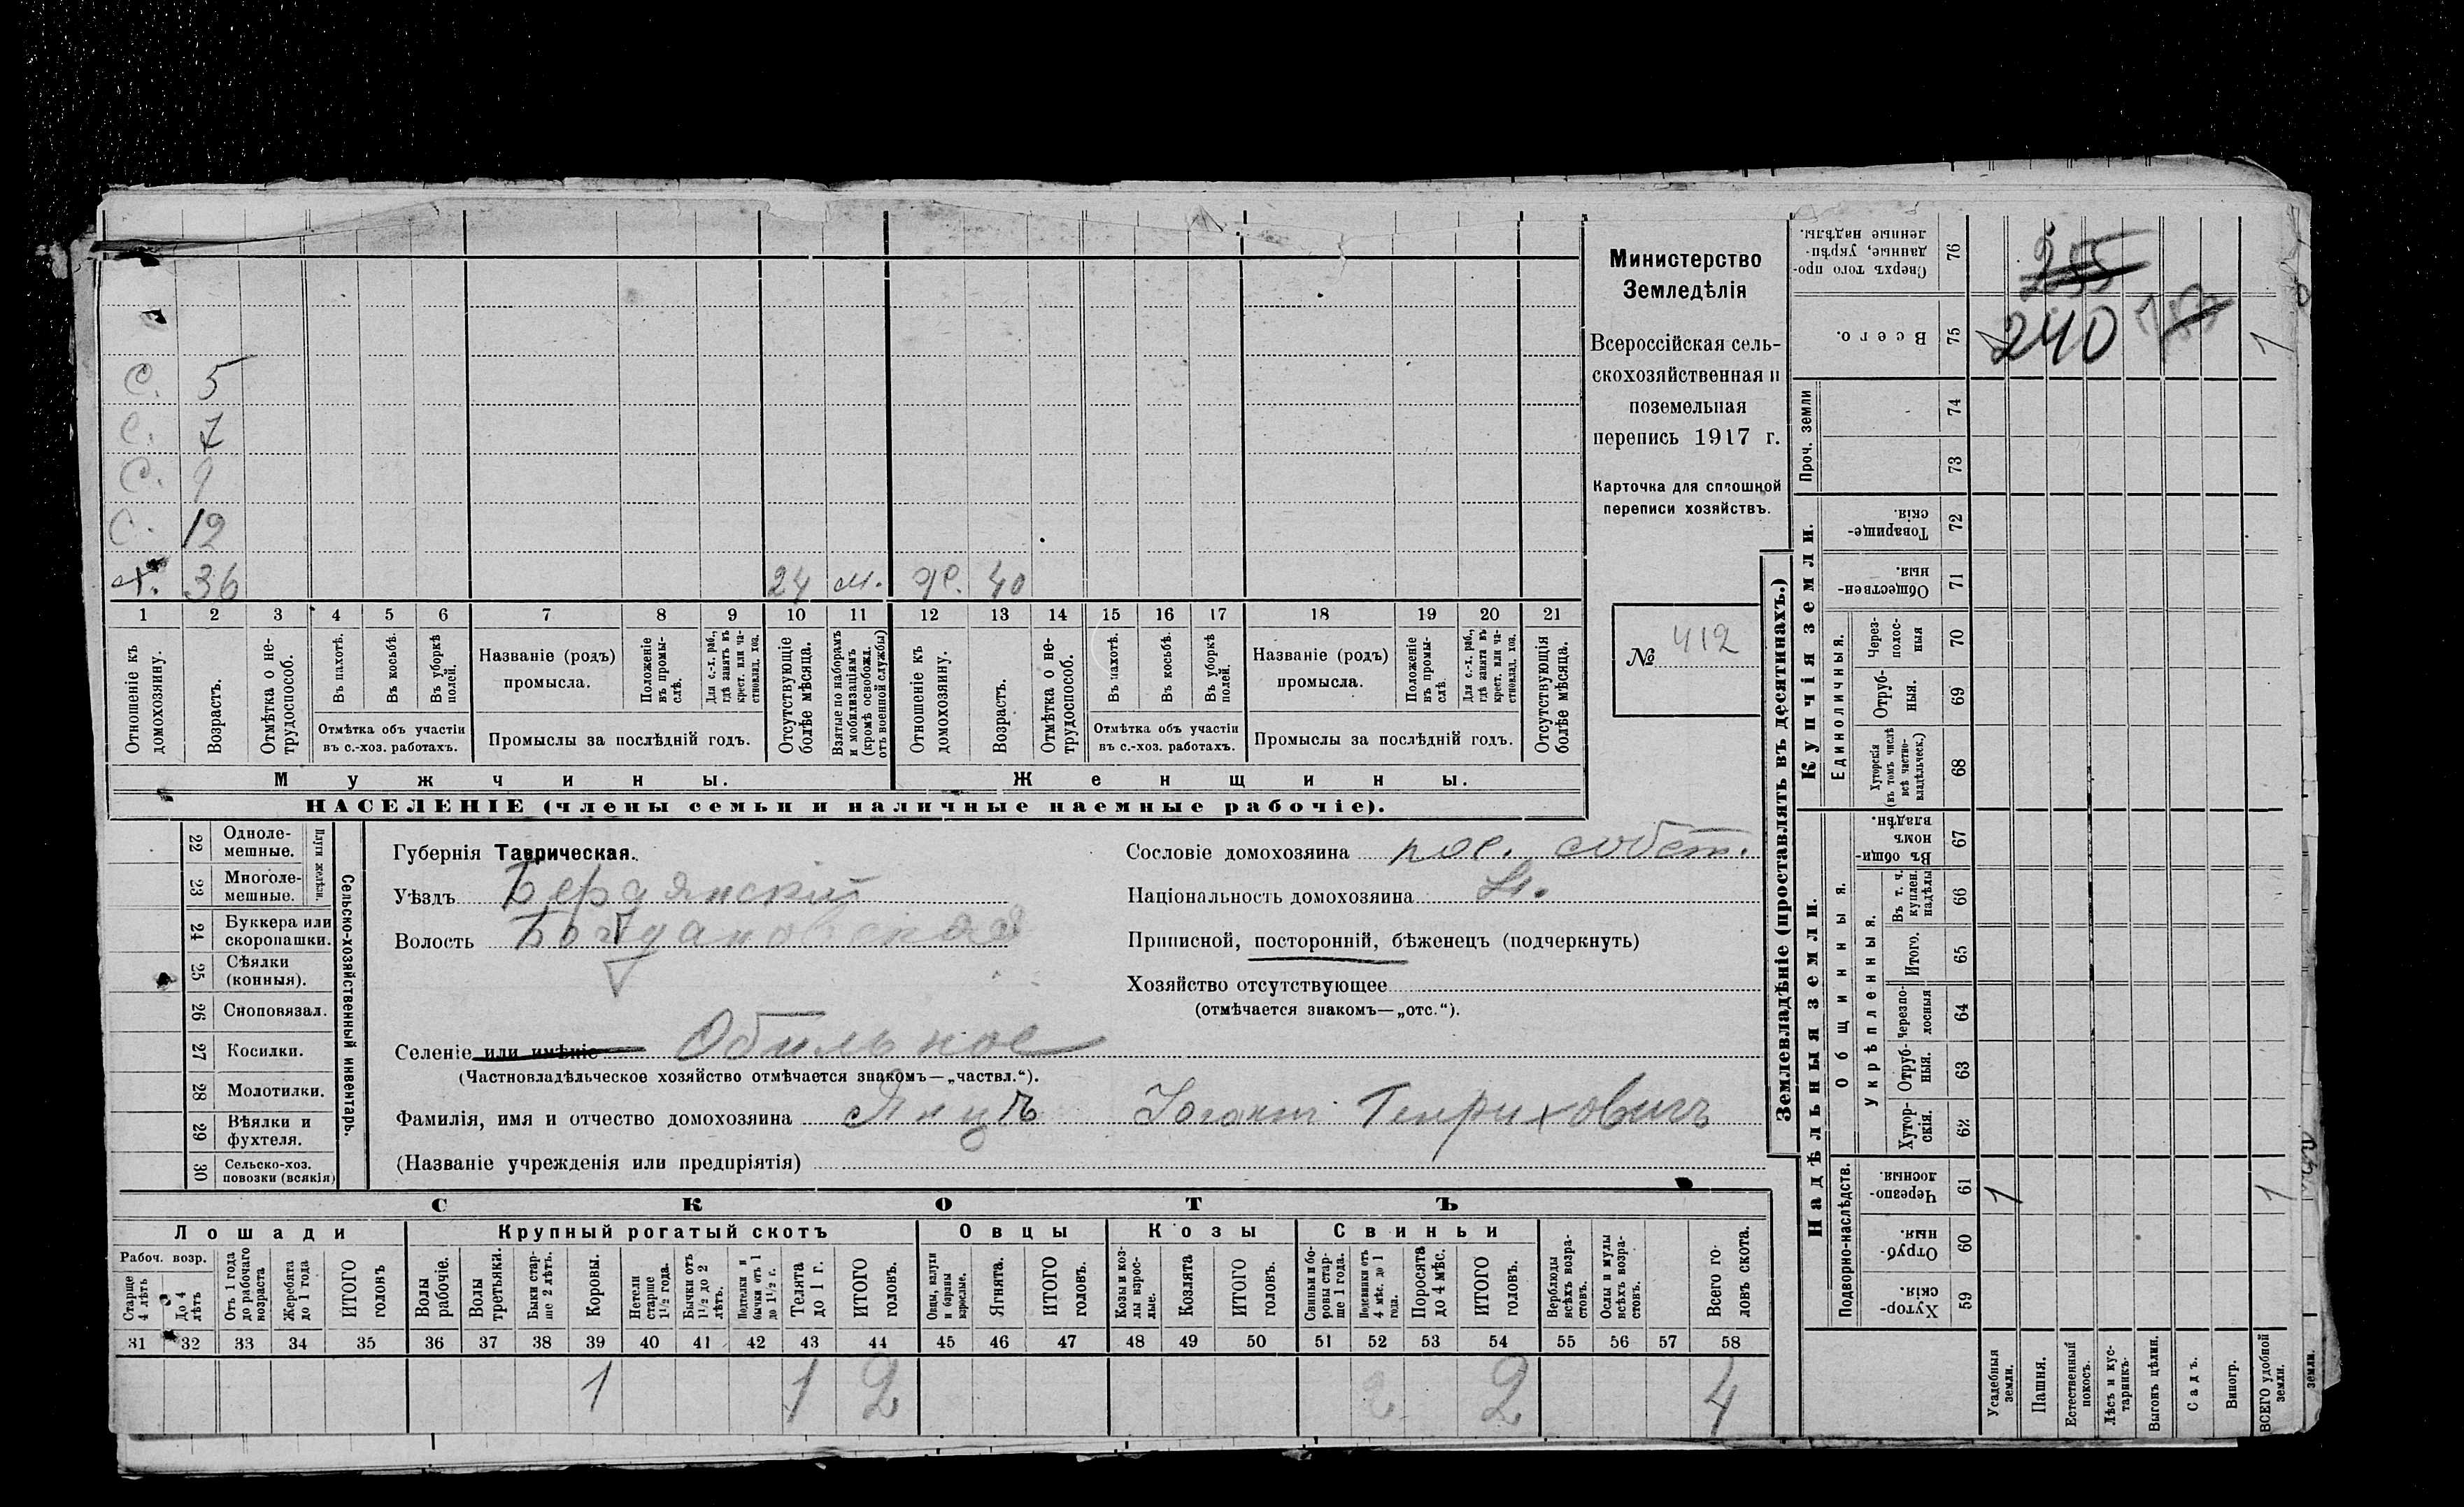 С. 5
С. 7
С. 9
С. 12
х. 36 24 м. ж. 40
1 2 3 4 5 6 7 8 9 10 11 12 13 14 15 16 17 18 19 20 21
Отношеніе къ домохозяину.
Возрастъ.
Отмѣтка о нетрудоспособ.
Въ пахотѣ.
Въ косьбѣ.
Въ уборкѣ полей.
Отмѣтка объ участіи
въ с.-хоз. работахъ.
Названіе (родъ)
промысла.
Положеніе въ промыслѣ.
Для с.-х. раб., гдѣ занятъ въ крест. или частновлад. хоз.
Промыслы за послѣдній годъ.
Отсутствующіе болѣе мѣсяца.
Взятые по наборамъ и мобилизаціямъ (кромѣ освобожд. отъ военной службы)
Отношеніе къ домохозяину.
Возрастъ.
Отмѣтка о нетрудоспособ.
Въ пахотѣ.
Въ косьбѣ.
Въ уборкѣ полей.
Отмѣтка объ участіи
въ с.-хоз. работахъ.
Названіе (родъ)
промысла.
Положеніе въ промыслѣ
Для с.-х. раб., гдѣ занята въ крест. или частновлад. хоз.
Промыслы за послѣдній годъ.
Отсутствующія болѣе мѣсяца.
Мужчины. Женщины.
НАСЕЛЕНІЕ (члены семьи и наличные наемные рабочіе).
Министерство
Земледѣлія
Всероссійская сель-
скохозяйственная и
поземельная
перепись 1917 г.
Карточка для сплошной
переписи хозяйствъ.
№ 412
22 Одноле-
мешные.
23 Многоле-
мешные.
Плуги желѣзн.
24 Буккера или
скоропашки.
25 Сѣялки
(конныя).
26 Сноповязал.
27 Косилки.
28 Молотилки.
29 Вѣялки и
фухтеля.
30 Сельско-хоз.
повозки (всякія)
Сельско-хозяйственный инвентарь.
Губернія Таврическая.
Уѣздъ Бердянскій
Волость Богдановская
Селеніе или имѣніе Обильное
(Частновладѣльческое хозяйство отмѣчается знакомъ—„частвл.“).
Фамилія, имя и отчество домохозяина Янцъ Іоганъ Генриховичъ
(Названіе учрежденія или предпріятія)
Сословіе домохозяина пос. собств.
Національность домохозяина Н.
Приписной, посторонній, бѣженецъ (подчеркнуть)
Хозяйство отсутствующее
(отмѣчается знакомъ—„отс.“).
СКОТЪ
Лошади Крупный рогатый скотъ Овцы Козы Свиньи
Рабоч. возр.
Старше 4 лѣтъ
До 4 лѣтъ
Отъ 1 года до рабочаго возраста
Жеребята до 1 года
ИТОГО головъ
Волы рабочіе.
Волы третьяки.
Быки старше 2 лѣтъ.
Коровы.
Нетели старше 1½ года.
Бычки отъ 1½ до 2 лѣтъ.
Подтелки и бычки отъ 1 до 1½ г.
Телята до 1 г.
ИТОГО головъ.
Овцы, валухи и бараны взрослые.
Ягнята.
ИТОГО головъ.
Козы и козлы взрослые.
Козлята
ИТОГО головъ.
Свиньи и боровы старше 1 года.
Подсвинки отъ 4 мѣс. до 1 года.
Поросята до 4 мѣс.
ИТОГО головъ.
Верблюды всѣхъ возрастовъ.
Ослы и мулы всѣхъ возрастовъ.
Всего головъ скота.
31 32 33 34 35 36 37 38 39 40 41 42 43 44 45 46 47 48 49 50 51 52 53 54 55 56 57 58
1 1 2 2 2 4
Землевладѣніе (проставлять въ десятинахъ.)
Надѣльныя земли. Купчія земли. Проч. земли
Подворно-наслѣдств.
Общинныя.
Укрѣпленныя.
Единоличныя.
Хуторскія. 59
Отрубныя. 60
Черезполосныя. 61 1 1
Хуторскія. 62
Отрубныя. 63
Черезполосныя 64
Итого. 65
Въ т. ч. куплен. надѣлы 66
Въ общинномъ владѣн. 67
Хуторскія (въ томъ числѣ всѣ частновладѣльческ.) 68
Отрубныя. 69
Черезполосныя 70
Общественныя. 71
Товарищескія. 72
73
74
Всего. 75 240 1
Сверхъ того проданные, укрѣпленные надѣлы. 76 255
Усадебныя земли.
Пашня.
Естественный покосъ.
Лѣсъ и кустарникъ.
Выгонъ цѣлин.
Садъ.
Виногр.
ВСЕГО удобной земли.
земли.